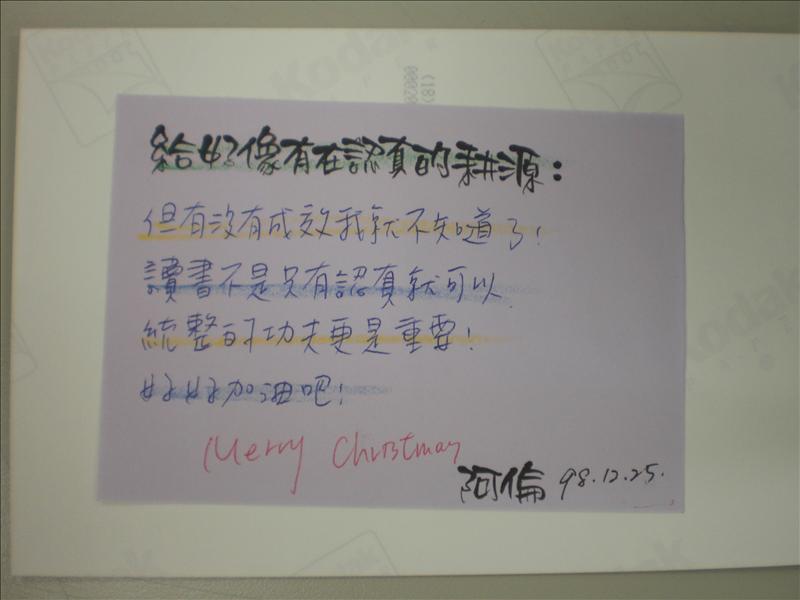 給好像有在認真的耕源:
但有沒有成效我就不知道了!
讀書不是只有認真就可以
統整的功夫更是重要!
好好加油吧!
Merry Christmas
阿倫 98.12.25.
Kodak
(18)